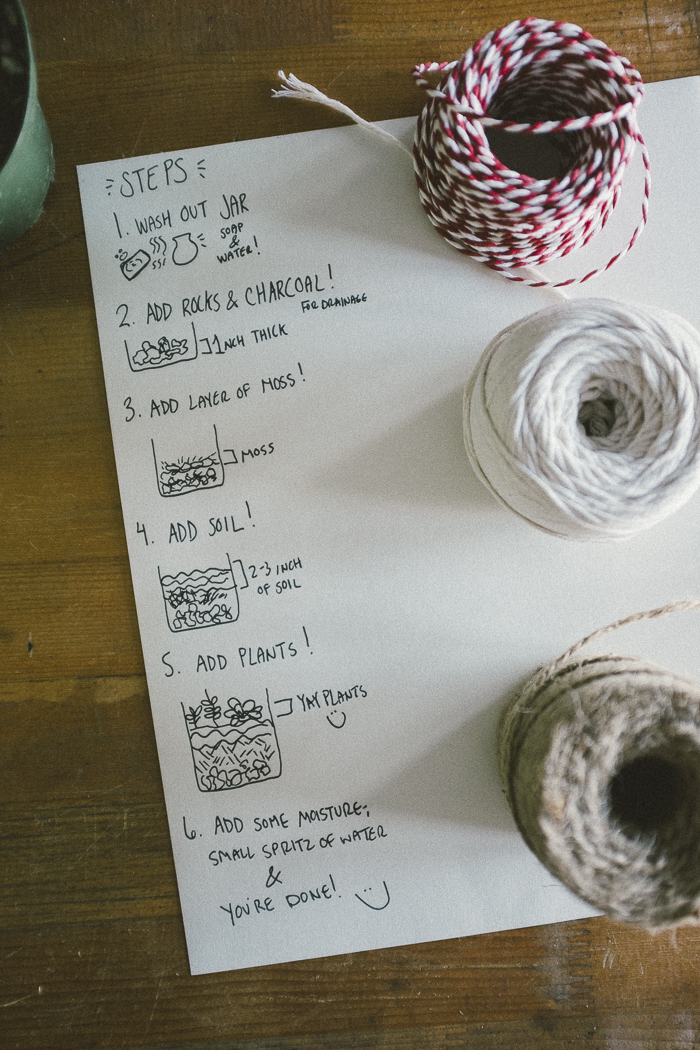 STEPS
1. WASH OUT JAR
SOAP
&
WATER!
2. ADD ROCKS & CHARCOAL!
FOR DRAINAGE
1 INCH THICK
3. ADD LAYER OF MOSS!
MOSS
4. ADD SOIL!
2-3 INCH
OF SOIL
5. ADD PLANTS!
YAY PLANTS
6. ADD SOME MOISTURE;
SMALL SPRITZ OF WATER
&
YOU'RE DONE!